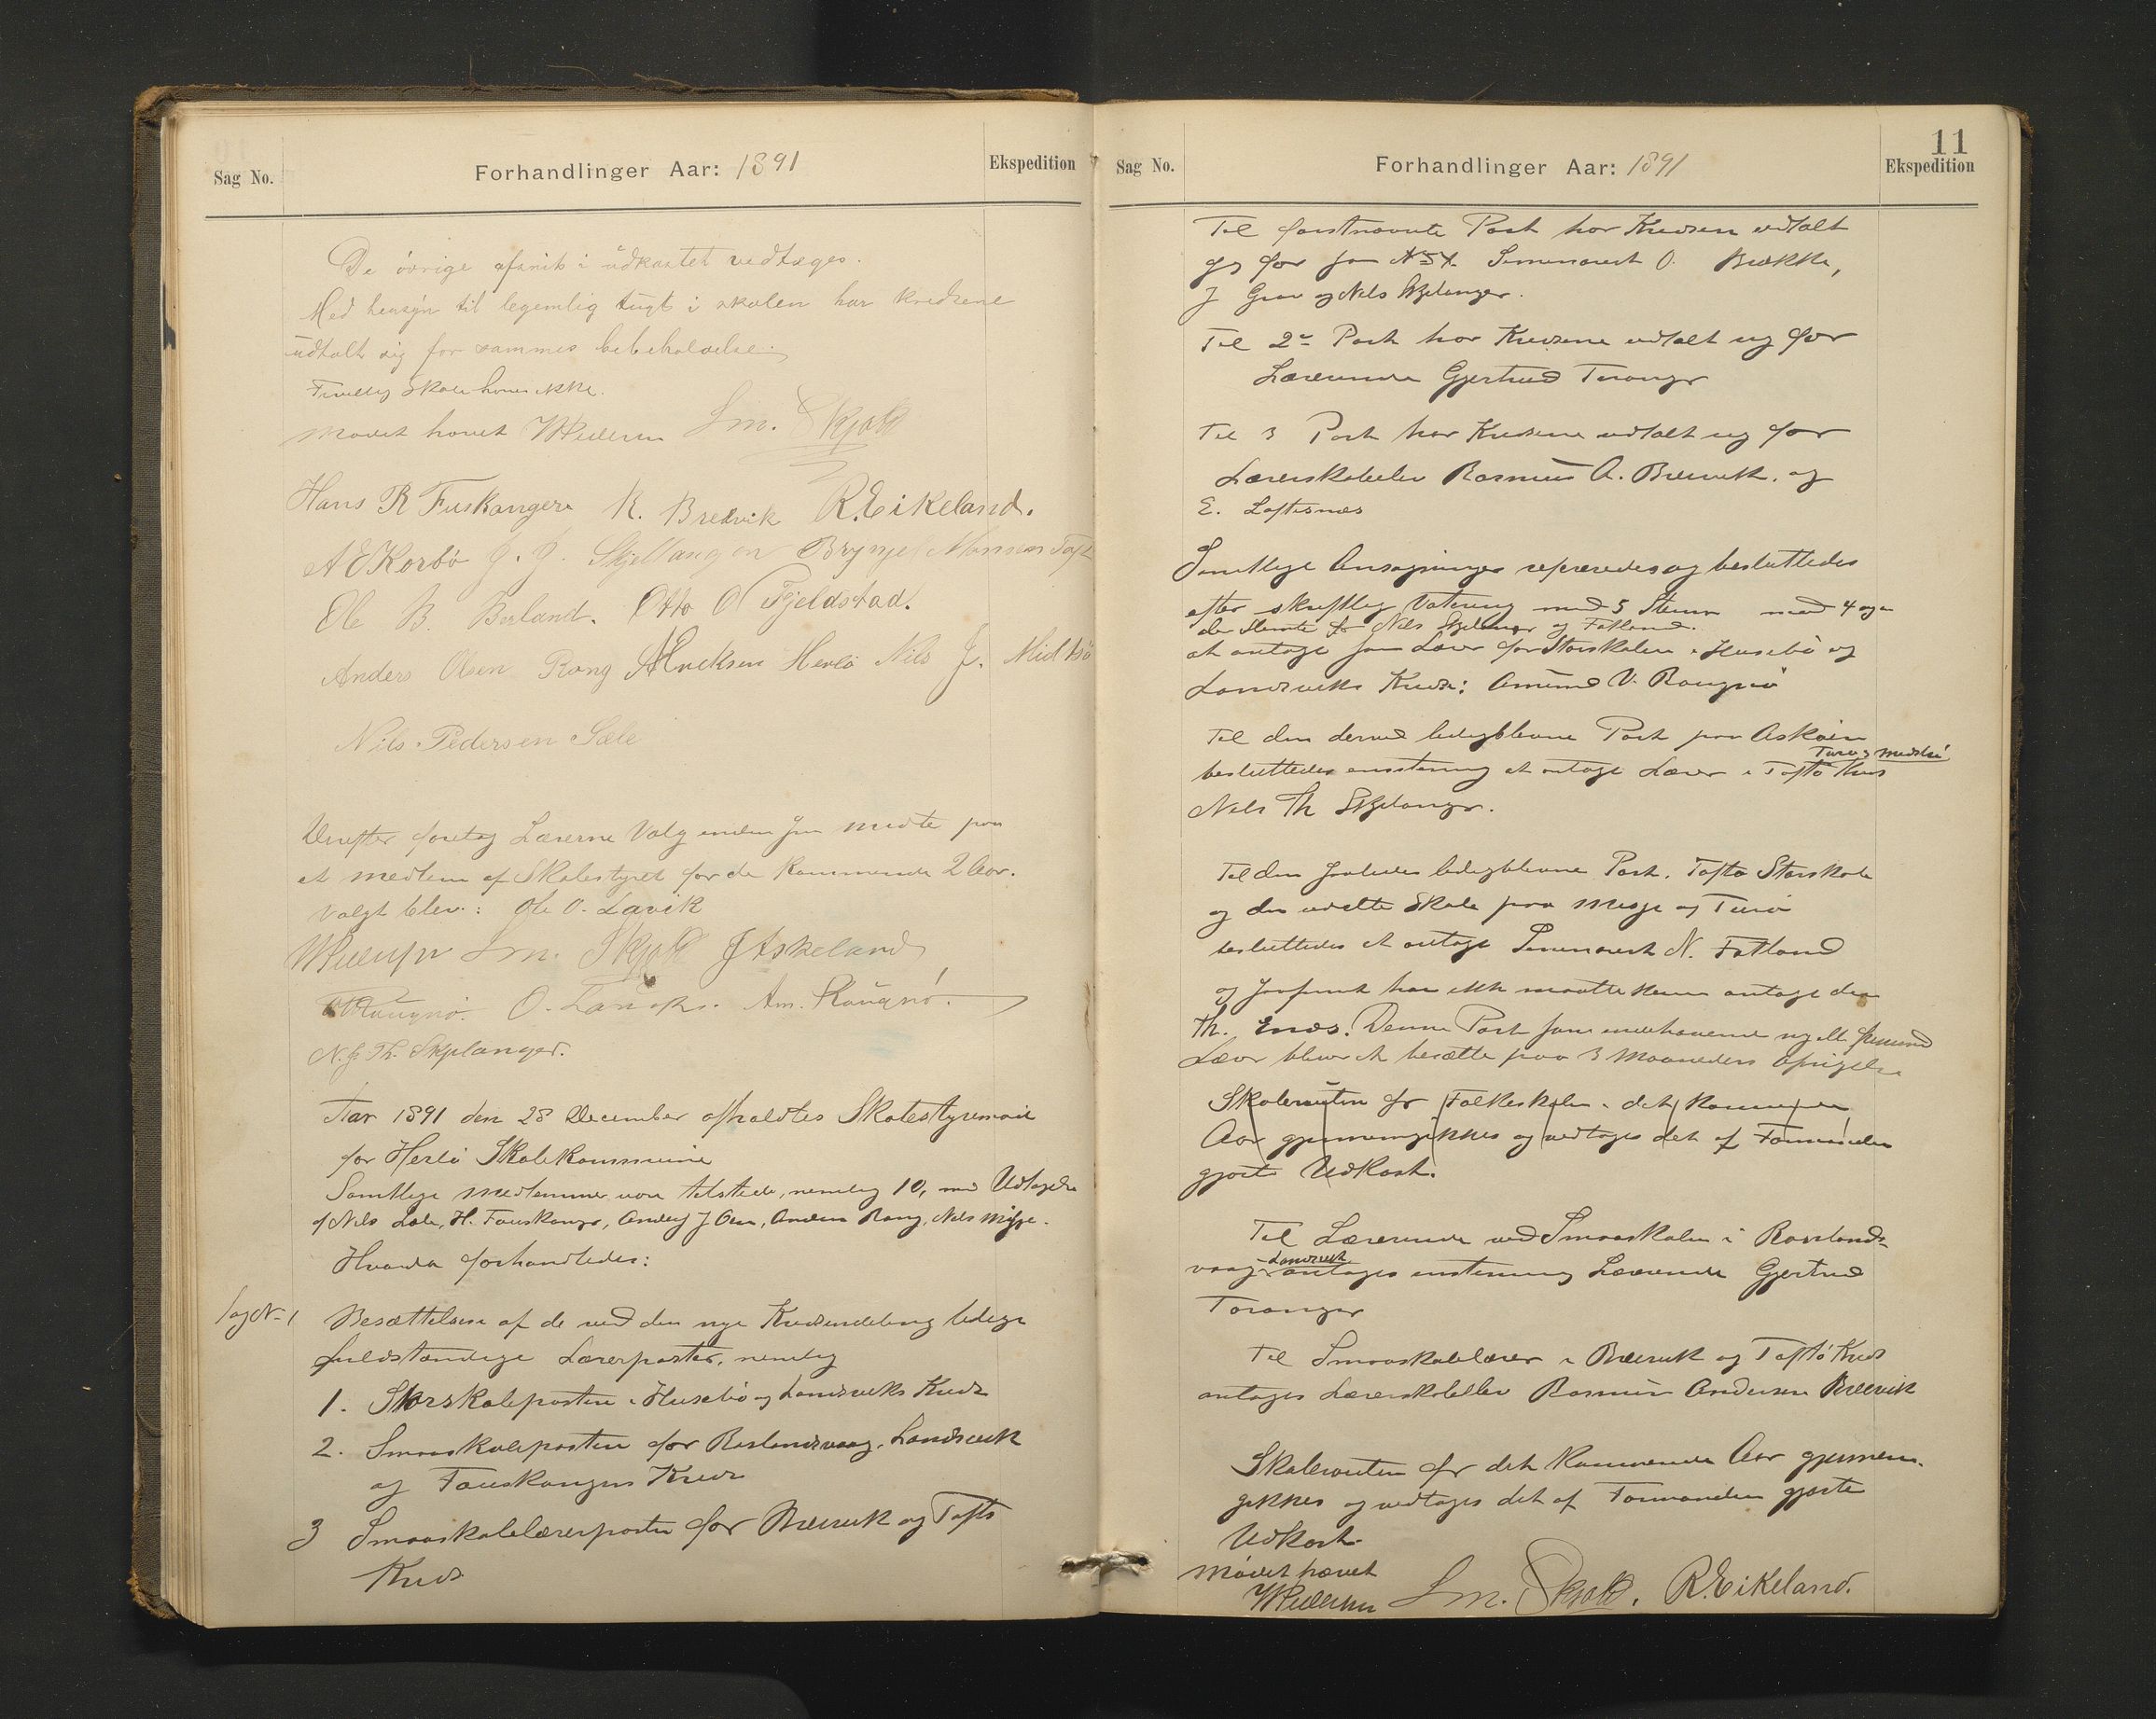 Sag No.
Forhandlinger Aar: 1891
Ekspedition
De övrige afsnit i üdkastet vedtages.
Med hensyn til legemlig tügt i skolen har kredsene
üdtalt sig for sammes bebeholdelse.
Frivillig Skole haves ikke.
Mödet hævet Sm. Skjold
Hans R Fuskanger K. Bredvik R. Eikeland.
A E Korbö J. J. Skjellanger Brynjel Monsen Tofte
Ole B. Buland. Otto O Fjeldstad.
Anders Olsen Rong Herlö Nils J. Midtsö
Nils Pedersen Sæle
Derefter foretog Lærerne Valg inden sin Midte paa
et medlem af Skolestyret for de kommende 2 Aar.
Valgt blev: Ole O. Lavik
Sm. Skjold J Askeland
Raugnö. O. Am. Raugnö.
N. J. Th. Skjelanger.
Aar 1891 den 28 December afholdtes Skolestyremöde
for Herlö Skolekommune
Samtlige medlemmer vare tilstede, nemlig 10, med Undtagelse
af Nils Sæle, H. Fauskanger, Anders Rong, Nils Misje.
Hvorda forhandledes:
Sag N. 1
Besættelsen af de ved den nye Kredsinddeling ledige
fuldstændige Lærerposter, nemlig
1. Storskoleposten i Husebö og Landsviks Kreds
2. Smaaskoleposten for Roslandsvaag, Landsvik
og Fauskangers Kreds
3 Smaaskolelærerposten for Bredvik og Tofte
Kreds
11
Sag No.
Forhandlinger Aar: 1891
Ekspedition
Til förstnævnte Post har Kredsen udtalt
sig for Seminarist O. Brekke,
J Grav og Nils Skjelanger.
Til 2n Post har Kredsene udtalt sig for
Lærerinde Gjertrud Toranger
Til 3 Post har Kredsene udtalt sig for
Lærerskoleelev Rasmus A. Bredvik, og
E. Loftesnes
Samtlige Ansøgninger refereredes og besluttedes
efter skriftlig Votering med 5 Stemmer mod 4
der stemte for Nils Skjelanger og Fotland.
at antage som Lærer for Storskolen i Husebö og
Landsviks Kreds: Amund V. Raugnö
Til den derved ledigblevne Post paa Asköen
Turö og Misje
besluttedes enstemmig at antage Lærer i Toftö Kreds
Nils Th Skjelanger.
Til den saaledes ledigblevne Post, Toftö Storskole
og den udelte Skole paa Misje og Turö
besluttedes at antage Seminarist N. Fotland
og saafremt han ikke maatte kunne antage den
Th. Enes. Denne Post
Lærer bliver at besætte paa 3 Maaneders Opsigelse
Skoleruten for Folkeskolen i det kommende
Aar gjennemgikkes og vedtoges det af Formanden
gjorte Udkast.
Til Lærerinde ved Smaaskolen i Roslands-
Landsvik
vaag antages enstemmig Lærerinde Gjertrud
Toranger
Til Smaaskolelærer i Bredvik og Toftö Kreds
antages Lærerskoleelev Rasmus Andersen Bredvik
Skoleruten for det kommende Aar gjennem-
gikkes og vedtoges det af Formanden gjorte
Udkast.
Mödet hævet
Sm. Skjold. R. Eikeland.